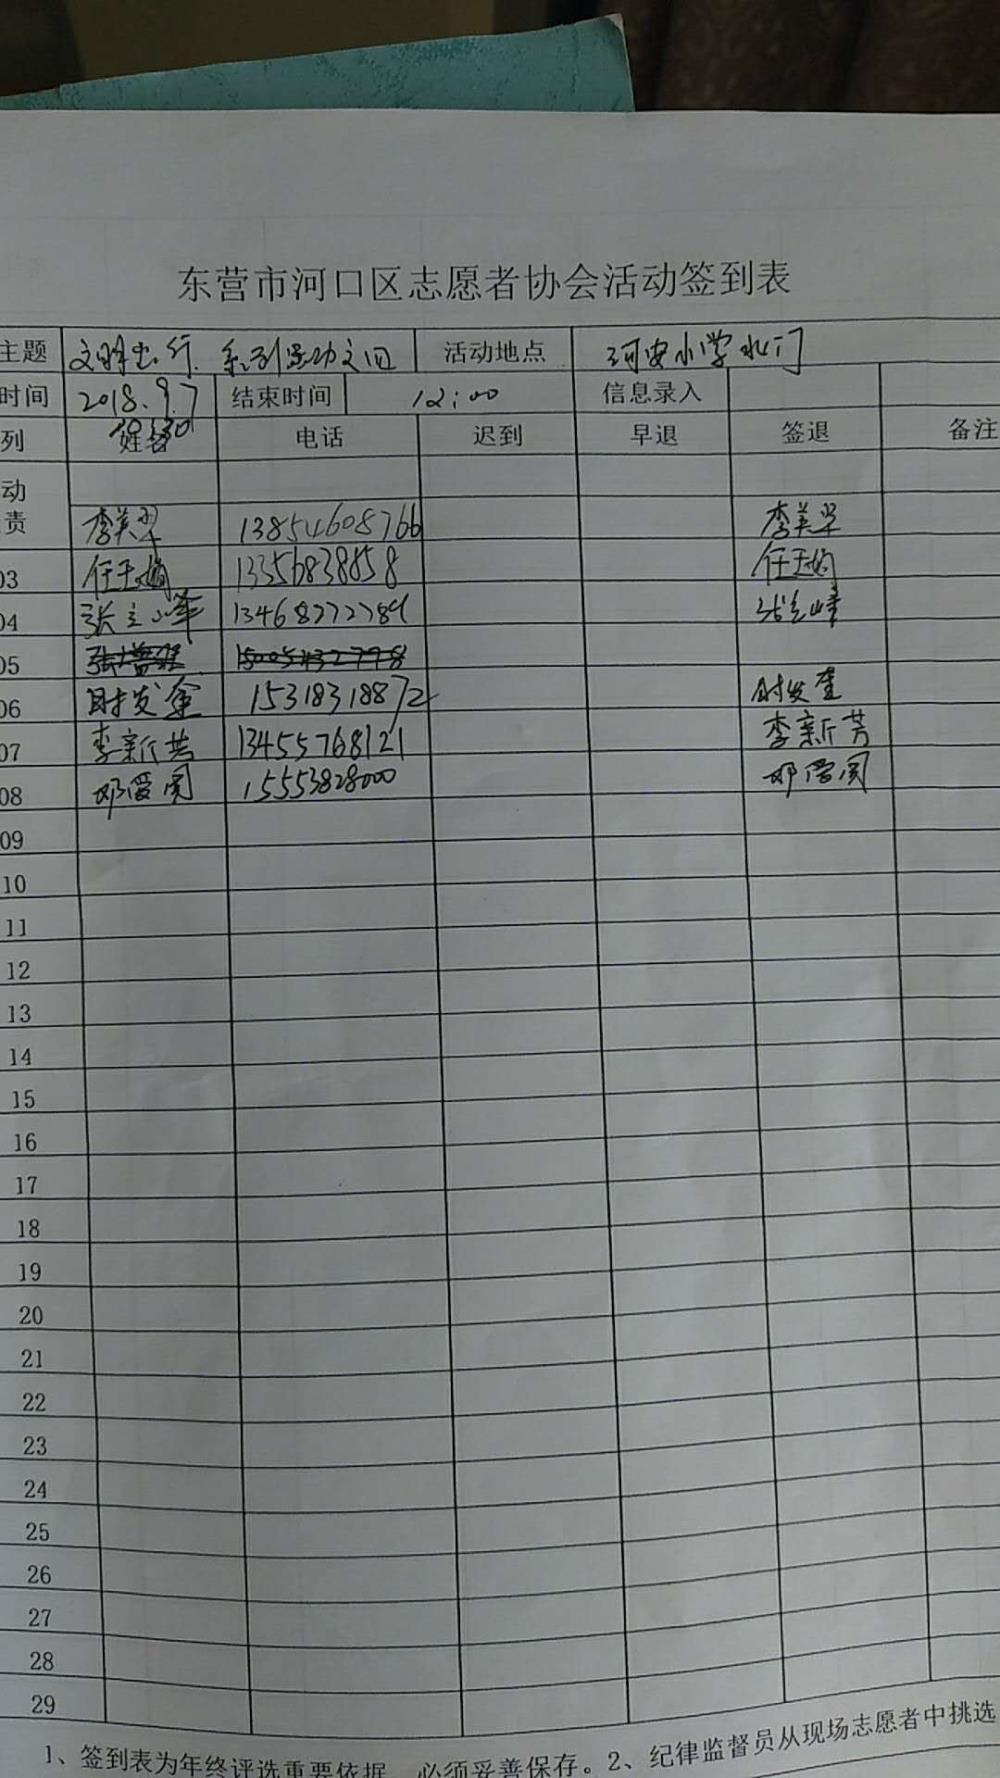 东营市河口区志愿者协会活动签到表
主题 文明出行 系列活动之四 活动地点 河安小学北门
时间 2018.9.7 结束时间 12:00 信息录入
10:30
列 姓名 电话 迟到 早退 签退 备注
动
责 李美翠 13854608766 李美翠
03 任玉娟 13356838858 任玉娟
04 张立峰 13468272789 张立峰
05
06 时发奎 15318318872 时发奎
07 李新芳 13455768121 李新芳
08 邓爱阁 15553828000 邓爱阁
09
10
11
12
13
14
15
16
17
18
19
20
21
22
23
24
25
26
27
28
29
1、签到表为年终评选重要依据，必须妥善保存。2、纪律监督员从现场志愿者中挑选